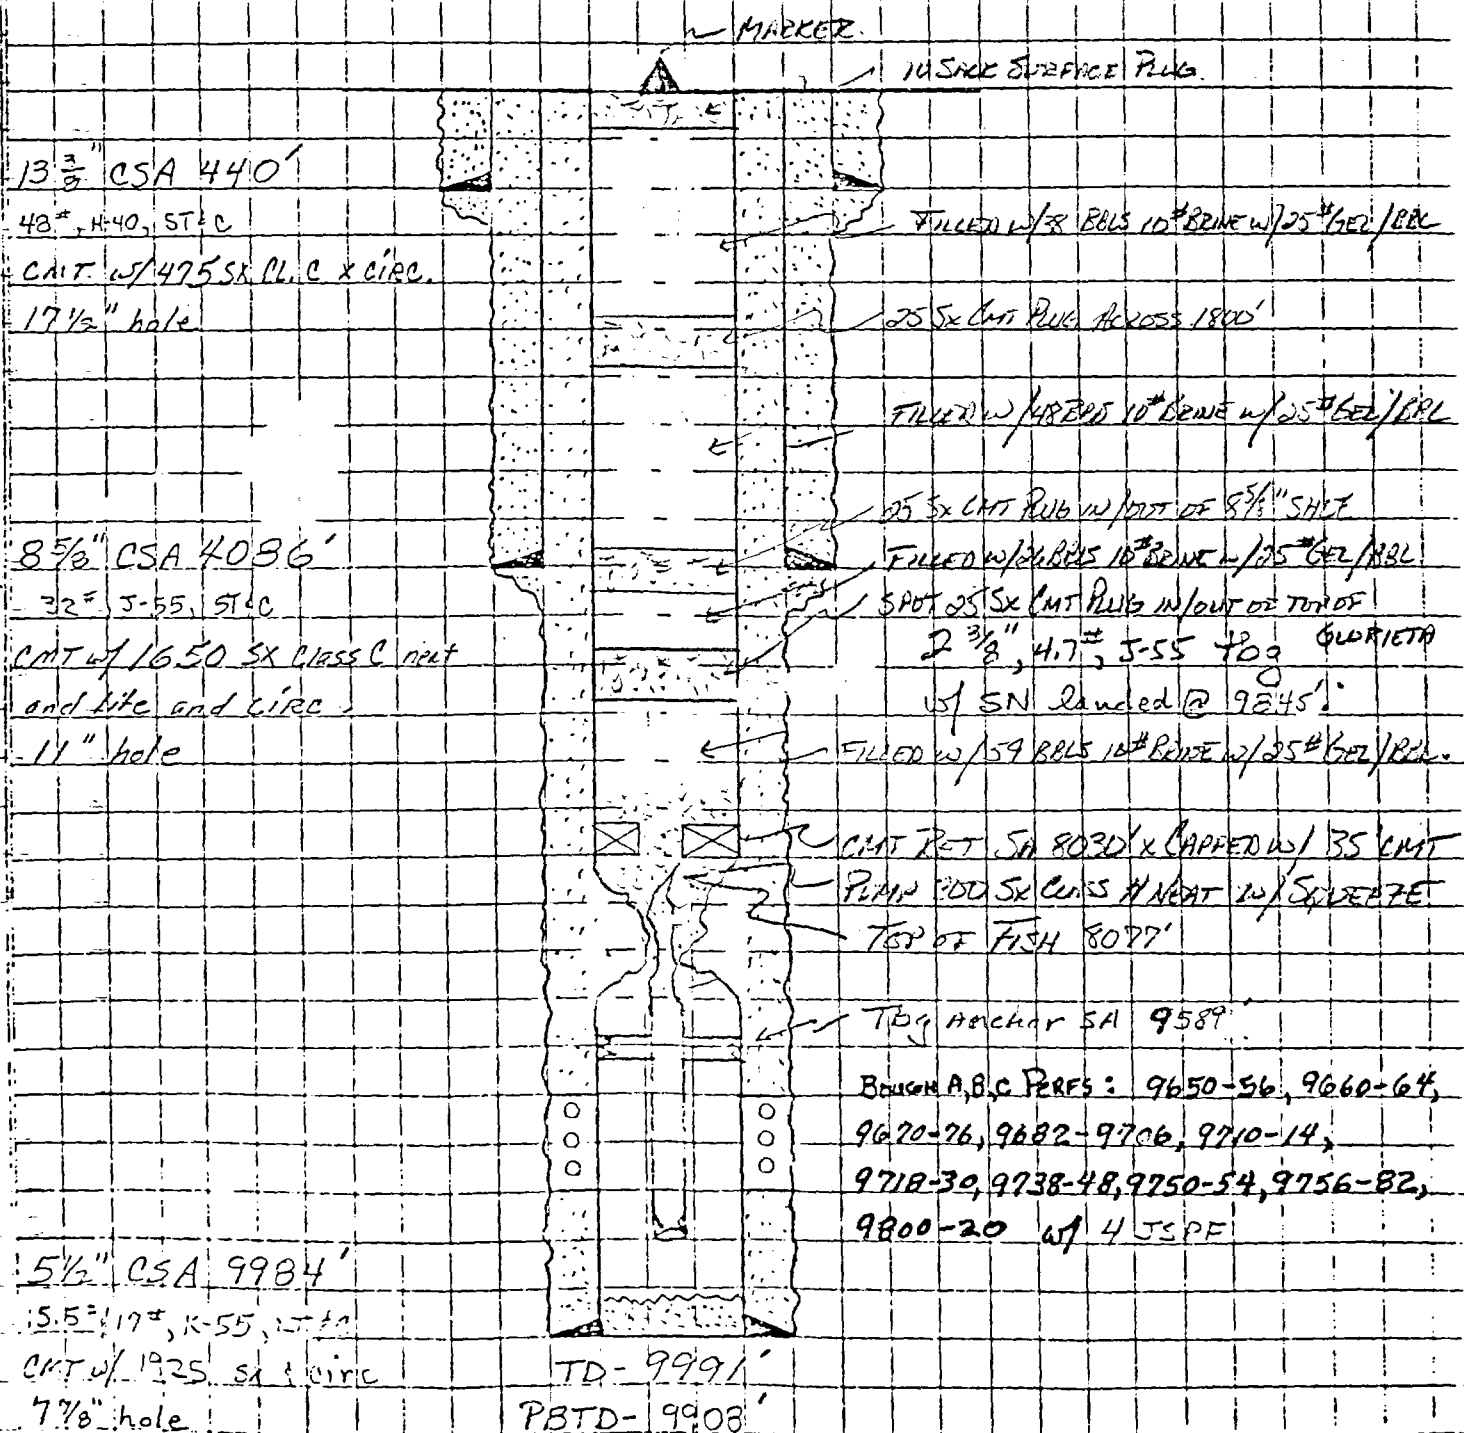 MARKER.
10 SACK SURFACE PLUG.
13 3/8" CSA 440'
48#, H-40, ST&C
CMT. w/ 475 SX CL. C X CIRC.
17 1/2" hole
FILLED W/38 BBLS 10# BRINE W/25# GEL/BBL
25 SX CMT PLUG ACROSS 1800'
FILLED W/48 BBLS 10# BRINE W/25# GEL/BBL
8 5/8" CSA 4086'
32#, J-55, ST&C
CMT w/ 1650 SX Class C neat
and Lite and CIRC.
11" hole
25 SX CMT PLUG IN/OUT OF 8 5/8" SHOE
FILLED W/26 BBLS 10# BRINE W/25# GEL/BBL.
SPOT 25 SX CMT PLUG IN/OUT OF TOP OF
GLORIETA
2 3/8", 4.7#, J-55 tbg
w/ SN landed @ 9845'.
FILLED W/59 BBLS 10# BRINE W/25# GEL/BBL.
CMT RET SA 8030' X CAPPED W/ 35' CMT
PUMP SX CLASS H NEAT W/ SQUEEZE
TOP OF FISH 8077'
Tbg Anchor SA 9589'
BOUGH A,B,C PERFS: 9650-56, 9660-64,
9670-76, 9682-9706, 9710-14,
9718-30, 9738-48, 9750-54, 9756-82,
9800-20 w/ 4 JSPF
5 1/2" CSA 9984'
15.5#, 17#, K-55,
CMT w/ 1925 sx & circ
7 7/8" hole
TD- 9991'
PBTD- 9908'